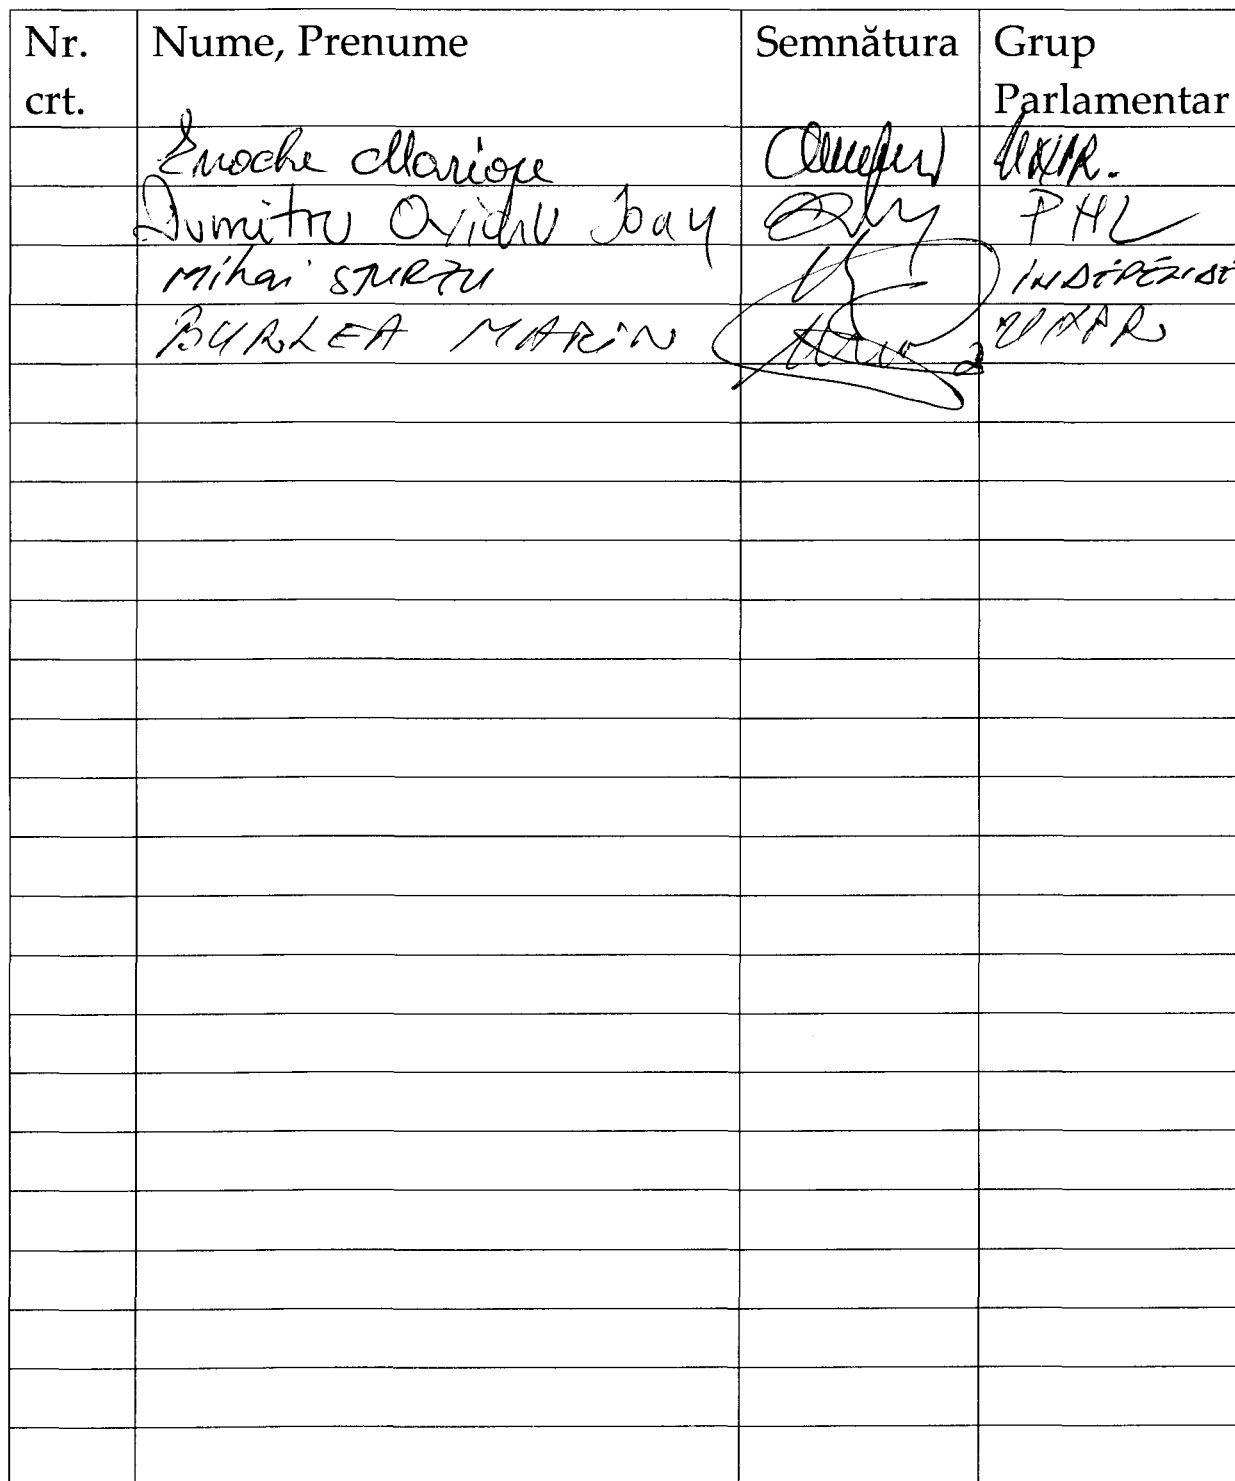 Nr. crt. Nume, Prenume Semnătura Grup Parlamentar
Enache Marian UNPR.
Dumitru Ovidiu Ioan PNL
Mihai STURZU INDEPENDE
BURLEA MARIN UNPR